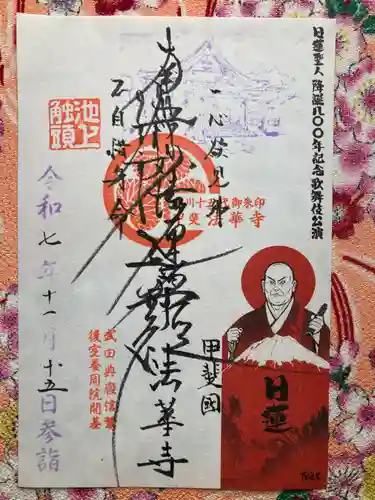 日蓮聖人 降誕八〇〇年記念 歌舞伎公演
一心欲見佛
不自惜身命
南無妙法蓮華経
甲斐国
法華寺
池上
触頭
法華寺
御朱印
令和七年十一月十五日参詣
武田典厩信繁
後室養周院開基
日蓮